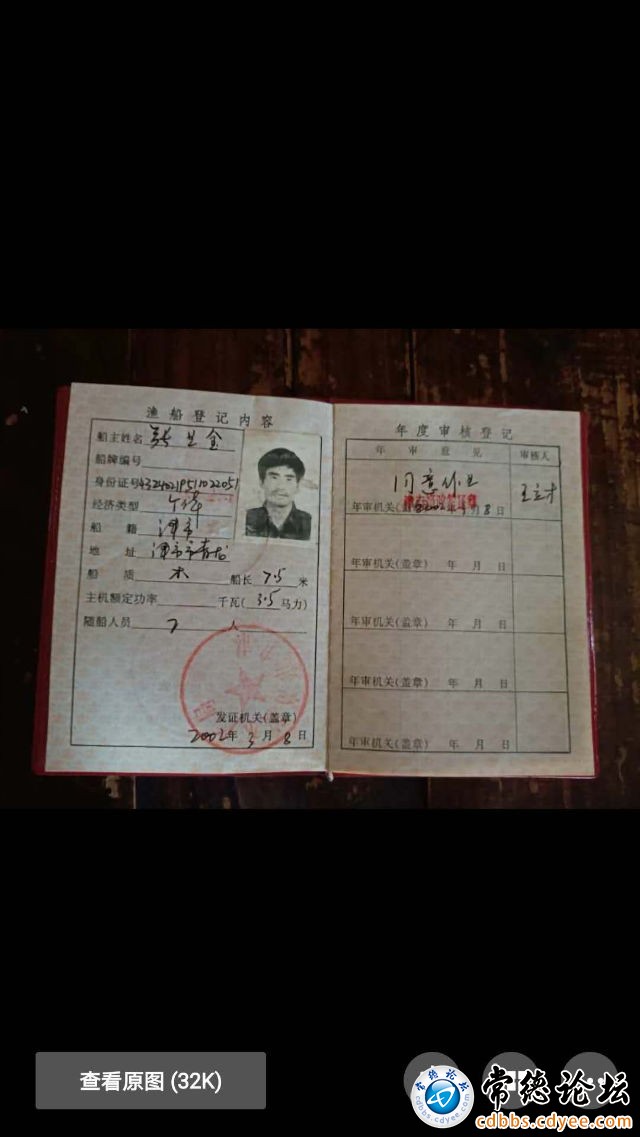 渔船登记内容
船主姓名 张兰金
船牌编号
身份证号
经济类型 个体
船籍 津市
地址 津市市青龙
船质 木 船长 7.5 米
主机额定功率 千瓦(3.5马力)
随船人员 2 人
发证机关(盖章)
2002年3月8日
年度审核登记
年审意见 审核人
同意作业
年审机关(盖章) 2002年3月8日
年审机关(盖章) 年 月 日
年审机关(盖章) 年 月 日
年审机关(盖章) 年 月 日
年审机关(盖章) 年 月 日
查看原图 (32K)
常德论坛
cdbbs.cdyee.com